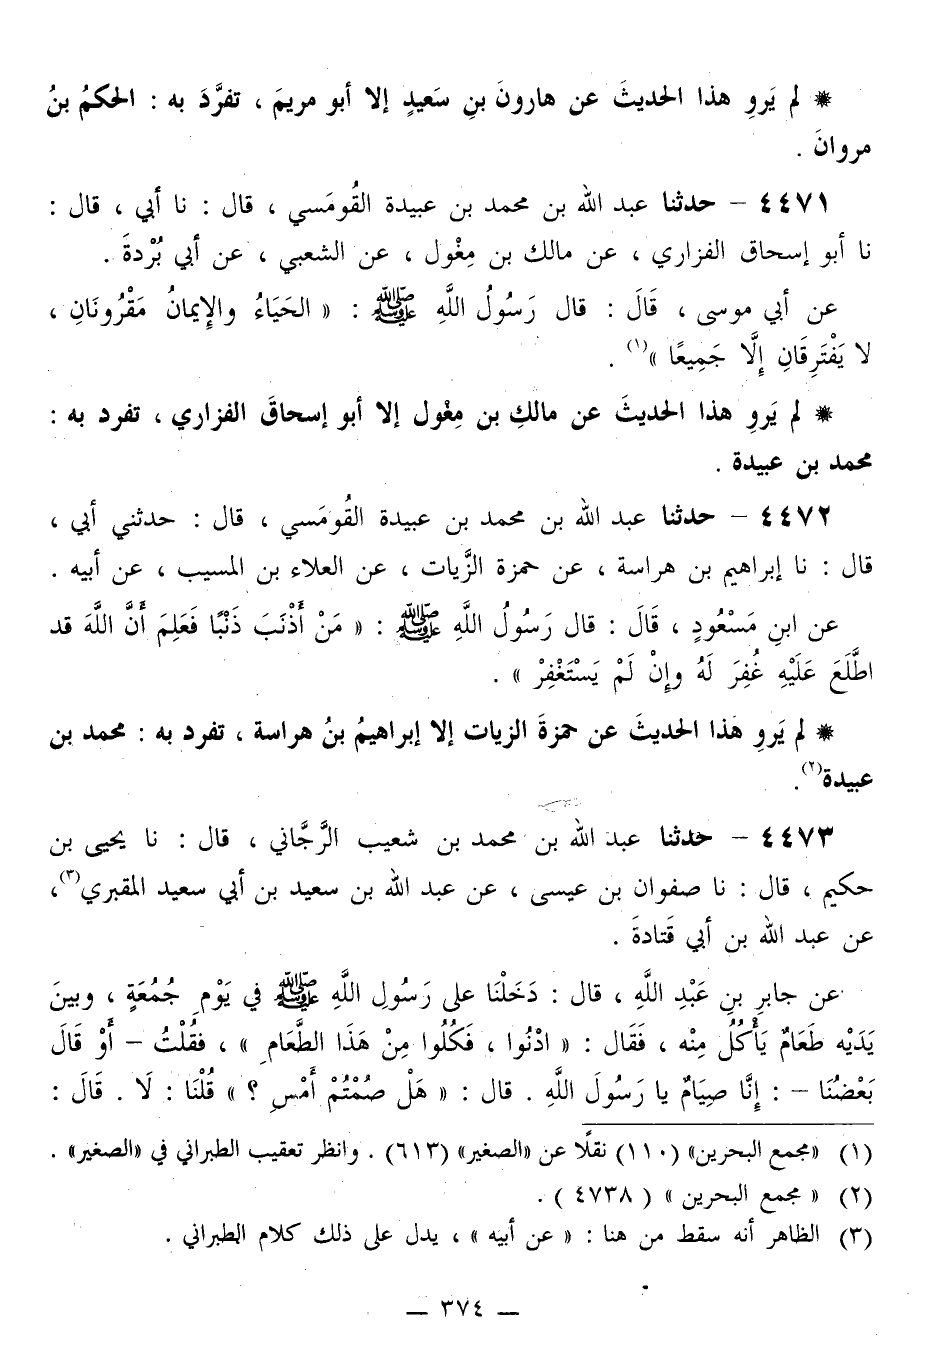 * لم يَروِ هذا الحديثَ عن هارونَ بنِ سَعيدٍ إلا أبو مريمَ ، تفرَّدَ به : الحكمُ بنُ
مروانَ .
٤٤٧١ - حدثنا عبد الله بن محمد بن عبيدة القُومَسي ، قال : نا أبي ، قال :
نا أبو إسحاق الفزاري ، عن مالك بن مِغْول ، عن الشعبي ، عن أبي بُرْدةَ .
عن أبي موسى ، قَالَ : قال رَسُولُ اللَّهِ ﷺ : « الحَيَاءُ والإِيمانُ مَقْرُونَانِ ،
لا يَفْتَرِقَانِ إِلَّا جَمِيعًا »(١) .
* لم يَروِ هذا الحديثَ عن مالكِ بن مِغْول إلا أبو إسحاقَ الفزاري ، تفرد به :
محمد بن عبيدة .
٤٤٧٢ - حدثنا عبد الله بن محمد بن عبيدة القُومَسي ، قال : حدثني أبي ،
قال : نا إبراهيم بن هراسة ، عن حمزة الزَّيات ، عن العلاء بن المسيب ، عن أبيه .
عن ابنِ مَسْعُودٍ ، قَالَ : قال رَسُولُ اللَّهِ ﷺ : « مَنْ أَذْنَبَ ذَنْبًا فَعَلِمَ أَنَّ اللَّهَ قد
اطَّلَعَ عَلَيْهِ غُفِرَ لَهُ وإِنْ لَمْ يَسْتَغْفِرْ » .
* لم يَروِ هَذا الحديثَ عن حمزةَ الزيات إلا إبراهيمُ بنُ هراسة ، تفرد به : محمد بن
عبيدة(٢).
٤٤٧٣ - حدثنا عبد الله بن محمد بن شعيب الرَّجَّاني ، قال : نا يحيى بن
حكيم ، قال : نا صفوان بن عيسى ، عن عبد الله بن سعيد بن أبي سعيد المقبري(٣)،
عن عبد الله بن أبي قَتادةَ .
عن جابرِ بنِ عَبْدِ اللَّهِ ، قال : دَخَلْنَا على رَسُولِ اللَّهِ ﷺ في يَوْمِ جُمُعَةٍ ، وبينَ
يَدَيْه طَعَامٌ يَأْكُلُ مِنْه ، فَقَال : « ادْنُوا ، فَكُلُوا مِنْ هَذَا الطَّعَامِ » ، فقُلْتُ - أَوْ قَالَ
بَعْضُنَا - : إِنَّا صِيَامٌ يا رَسُولَ اللَّهِ . قال : « هَلْ صُمْتُمْ أَمْسِ ؟ » قُلْنَا : لَا . قَالَ :
(١) «مجمع البحرين» (١١٠) نقلًا عن «الصغير» (٦١٣) . وانظر تعقيب الطبراني في «الصغير» .
(٢) « مجمع البحرين » ( ٤٧٣٨ ) .
(٣) الظاهر أنه سقط من هنا : « عن أبيه » ، يدل على ذلك كلام الطبراني .
— ٣٧٤ —